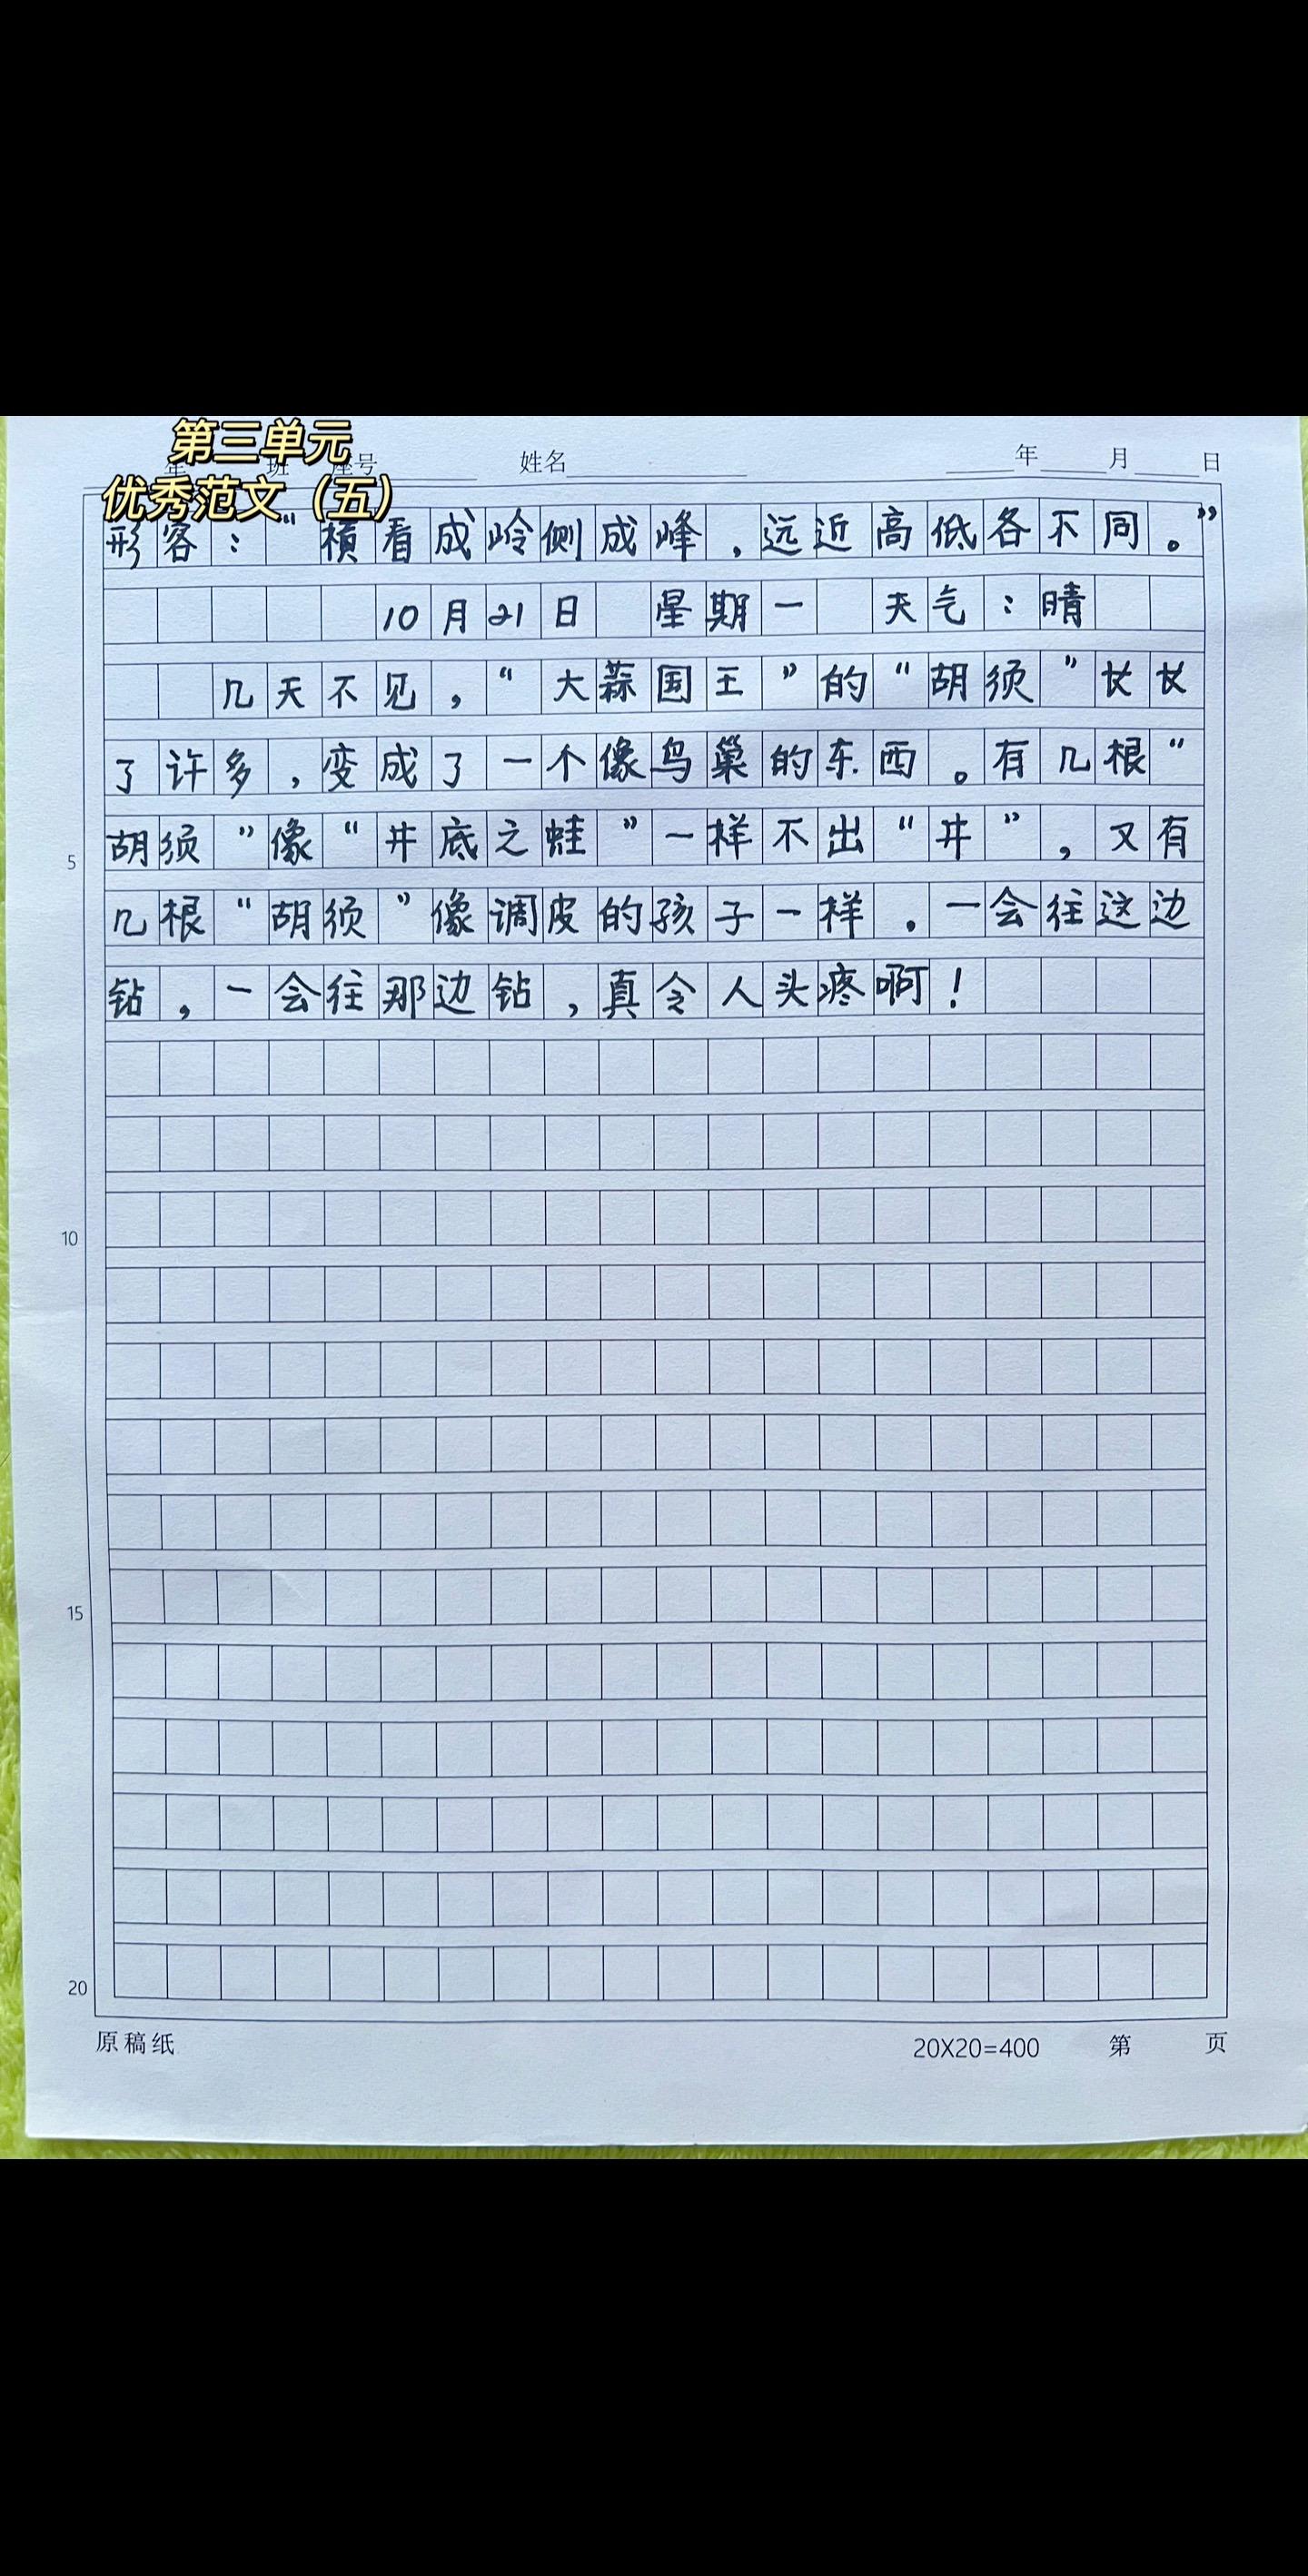 第三单元
优秀范文（五）
年 班 座号 姓名 年 月 日
形容："横看成岭侧成峰，远近高低各不同。"
10月21日 星期一 天气：晴
几天不见，"大蒜国王"的"胡须"长长
了许多，变成了一个像鸟巢的东西。有几根"
胡须"像"井底之蛙"一样不出"井"，又有
几根"胡须"像调皮的孩子一样。一会往这边
钻，一会往那边钻，真令人头疼啊！
5
10
15
20
原稿纸 20X20=400 第 页